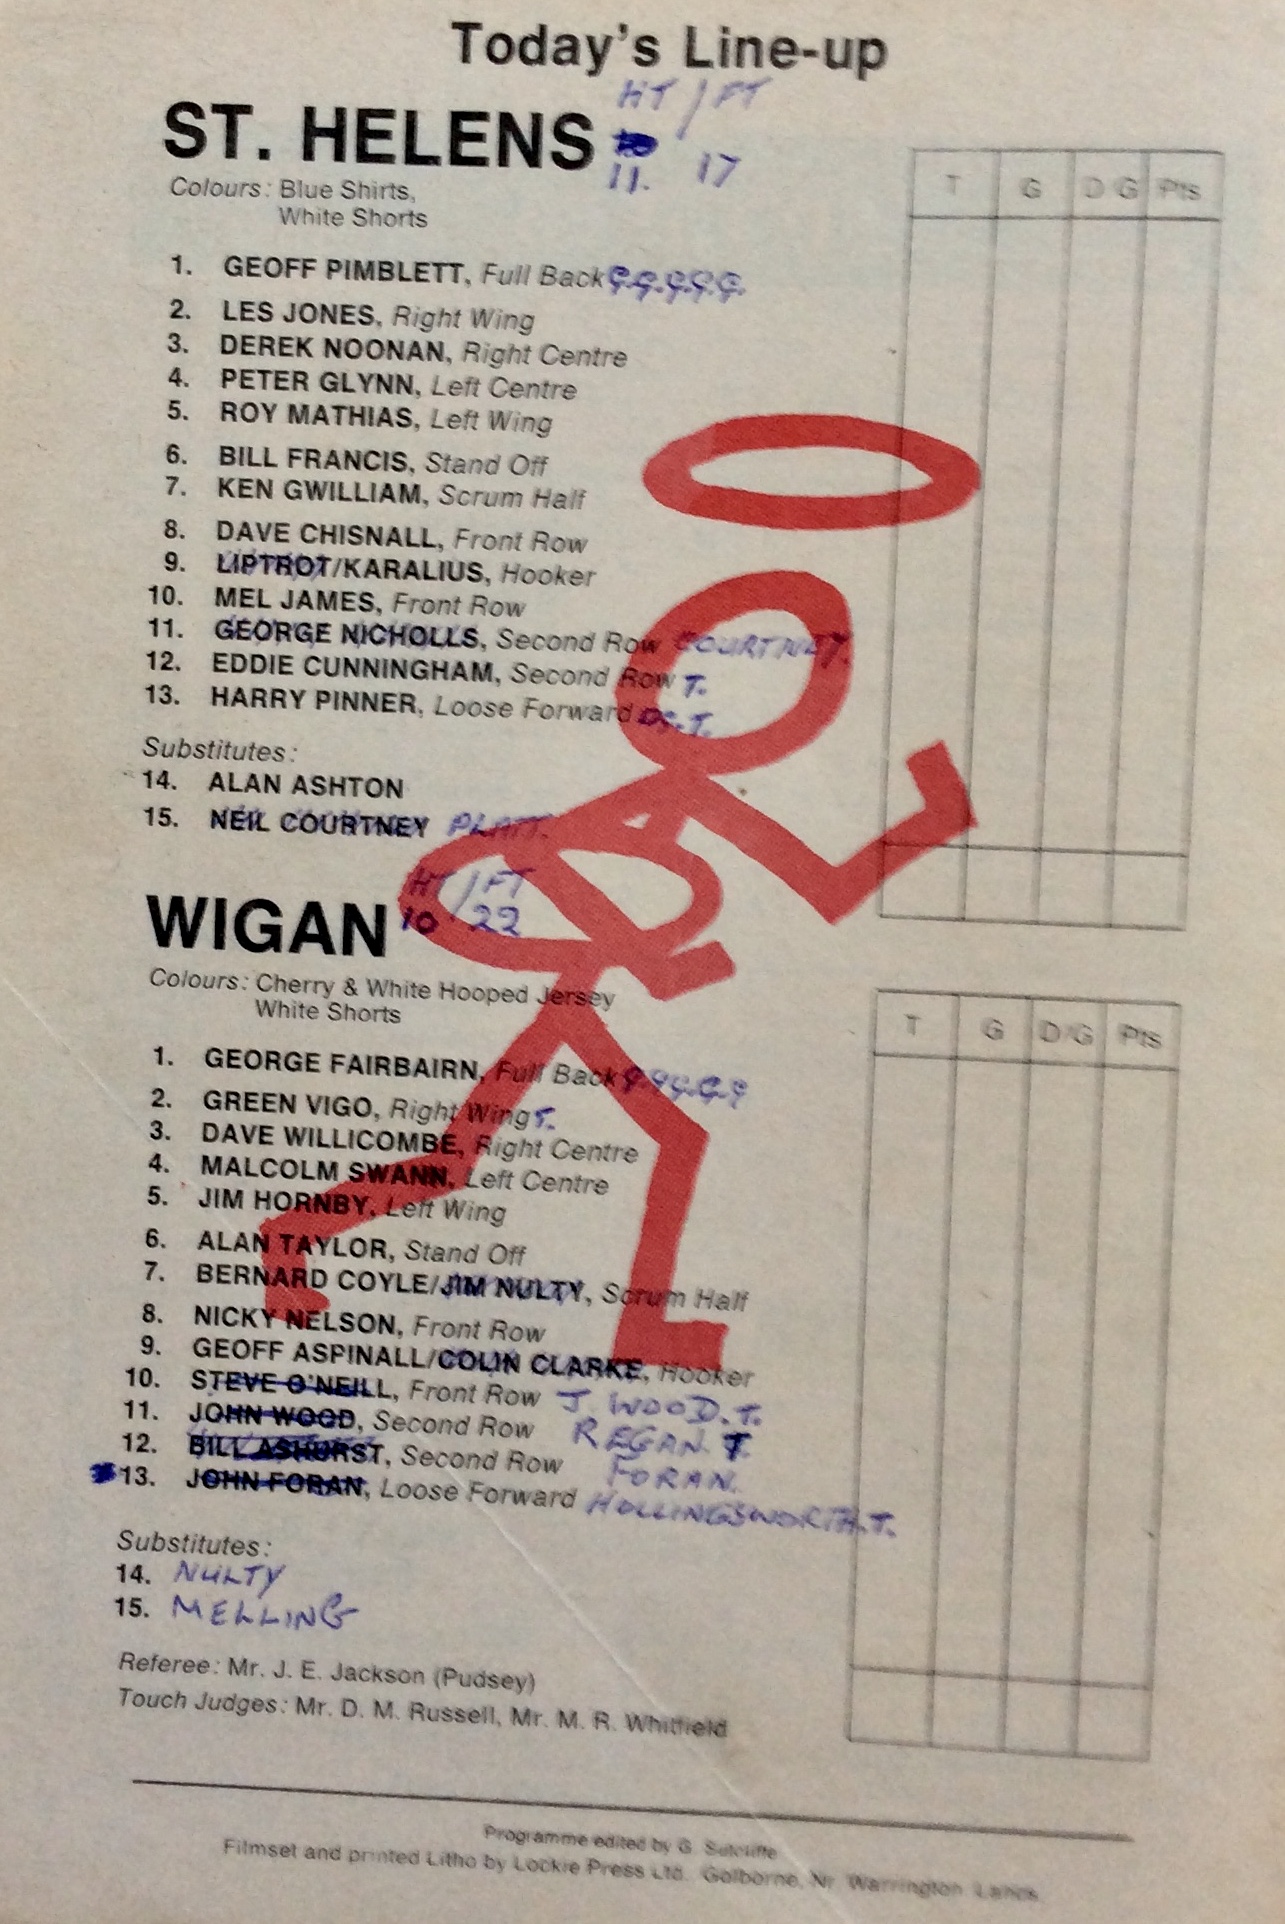 Today's Line-up
HT / FT
ST. HELENS
11. 17
Colours: Blue Shirts,
White Shorts
T G D G Pts
1. GEOFF PIMBLETT, Full Back G.G.G.G.G.
2. LES JONES, Right Wing
3. DEREK NOONAN, Right Centre
4. PETER GLYNN, Left Centre
5. ROY MATHIAS, Left Wing
6. BILL FRANCIS, Stand Off
7. KEN GWILLIAM, Scrum Half
8. DAVE CHISNALL, Front Row
9. LIPTROT/KARALIUS, Hooker
10. MEL JAMES, Front Row
11. GEORGE NICHOLLS, Second Row COURTNEY.
12. EDDIE CUNNINGHAM, Second Row T.
13. HARRY PINNER, Loose Forward DG.T.
Substitutes:
14. ALAN ASHTON
15. NEIL COURTNEY PLATT.
HT / FT
WIGAN 10 22
Colours: Cherry & White Hooped Jersey
White Shorts
T G D/G Pts
1. GEORGE FAIRBAIRN, Full Back G.G.G.G.G
2. GREEN VIGO, Right Wing T.
3. DAVE WILLICOMBE, Right Centre
4. MALCOLM SWANN, Left Centre
5. JIM HORNBY, Left Wing
6. ALAN TAYLOR, Stand Off
7. BERNARD COYLE/JIM NULTY, Scrum Half
8. NICKY NELSON, Front Row
9. GEOFF ASPINALL/COLIN CLARKE, Hooker
10. STEVE O'NEILL, Front Row J. WOOD. T.
11. JOHN WOOD, Second Row REGAN. T.
12. BILL ASHURST, Second Row FORAN.
13. JOHN FORAN, Loose Forward HOLLINGSWORTH.T.
Substitutes:
14. NULTY
15. MELLING
Referee: Mr. J. E. Jackson (Pudsey)
Touch Judges: Mr. D. M. Russell, Mr. M. R. Whitfield
Programme edited by G. Sutcliffe
Filmset and printed Litho by Lockie Press Ltd. Golborne, Nr. Warrington Lancs